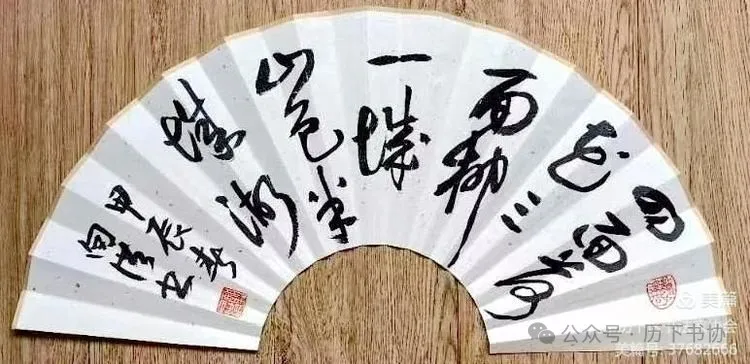 四面荷
花三
面柳
一城
山色半
城湖
甲辰春
书
美篇
公众号·历下书协